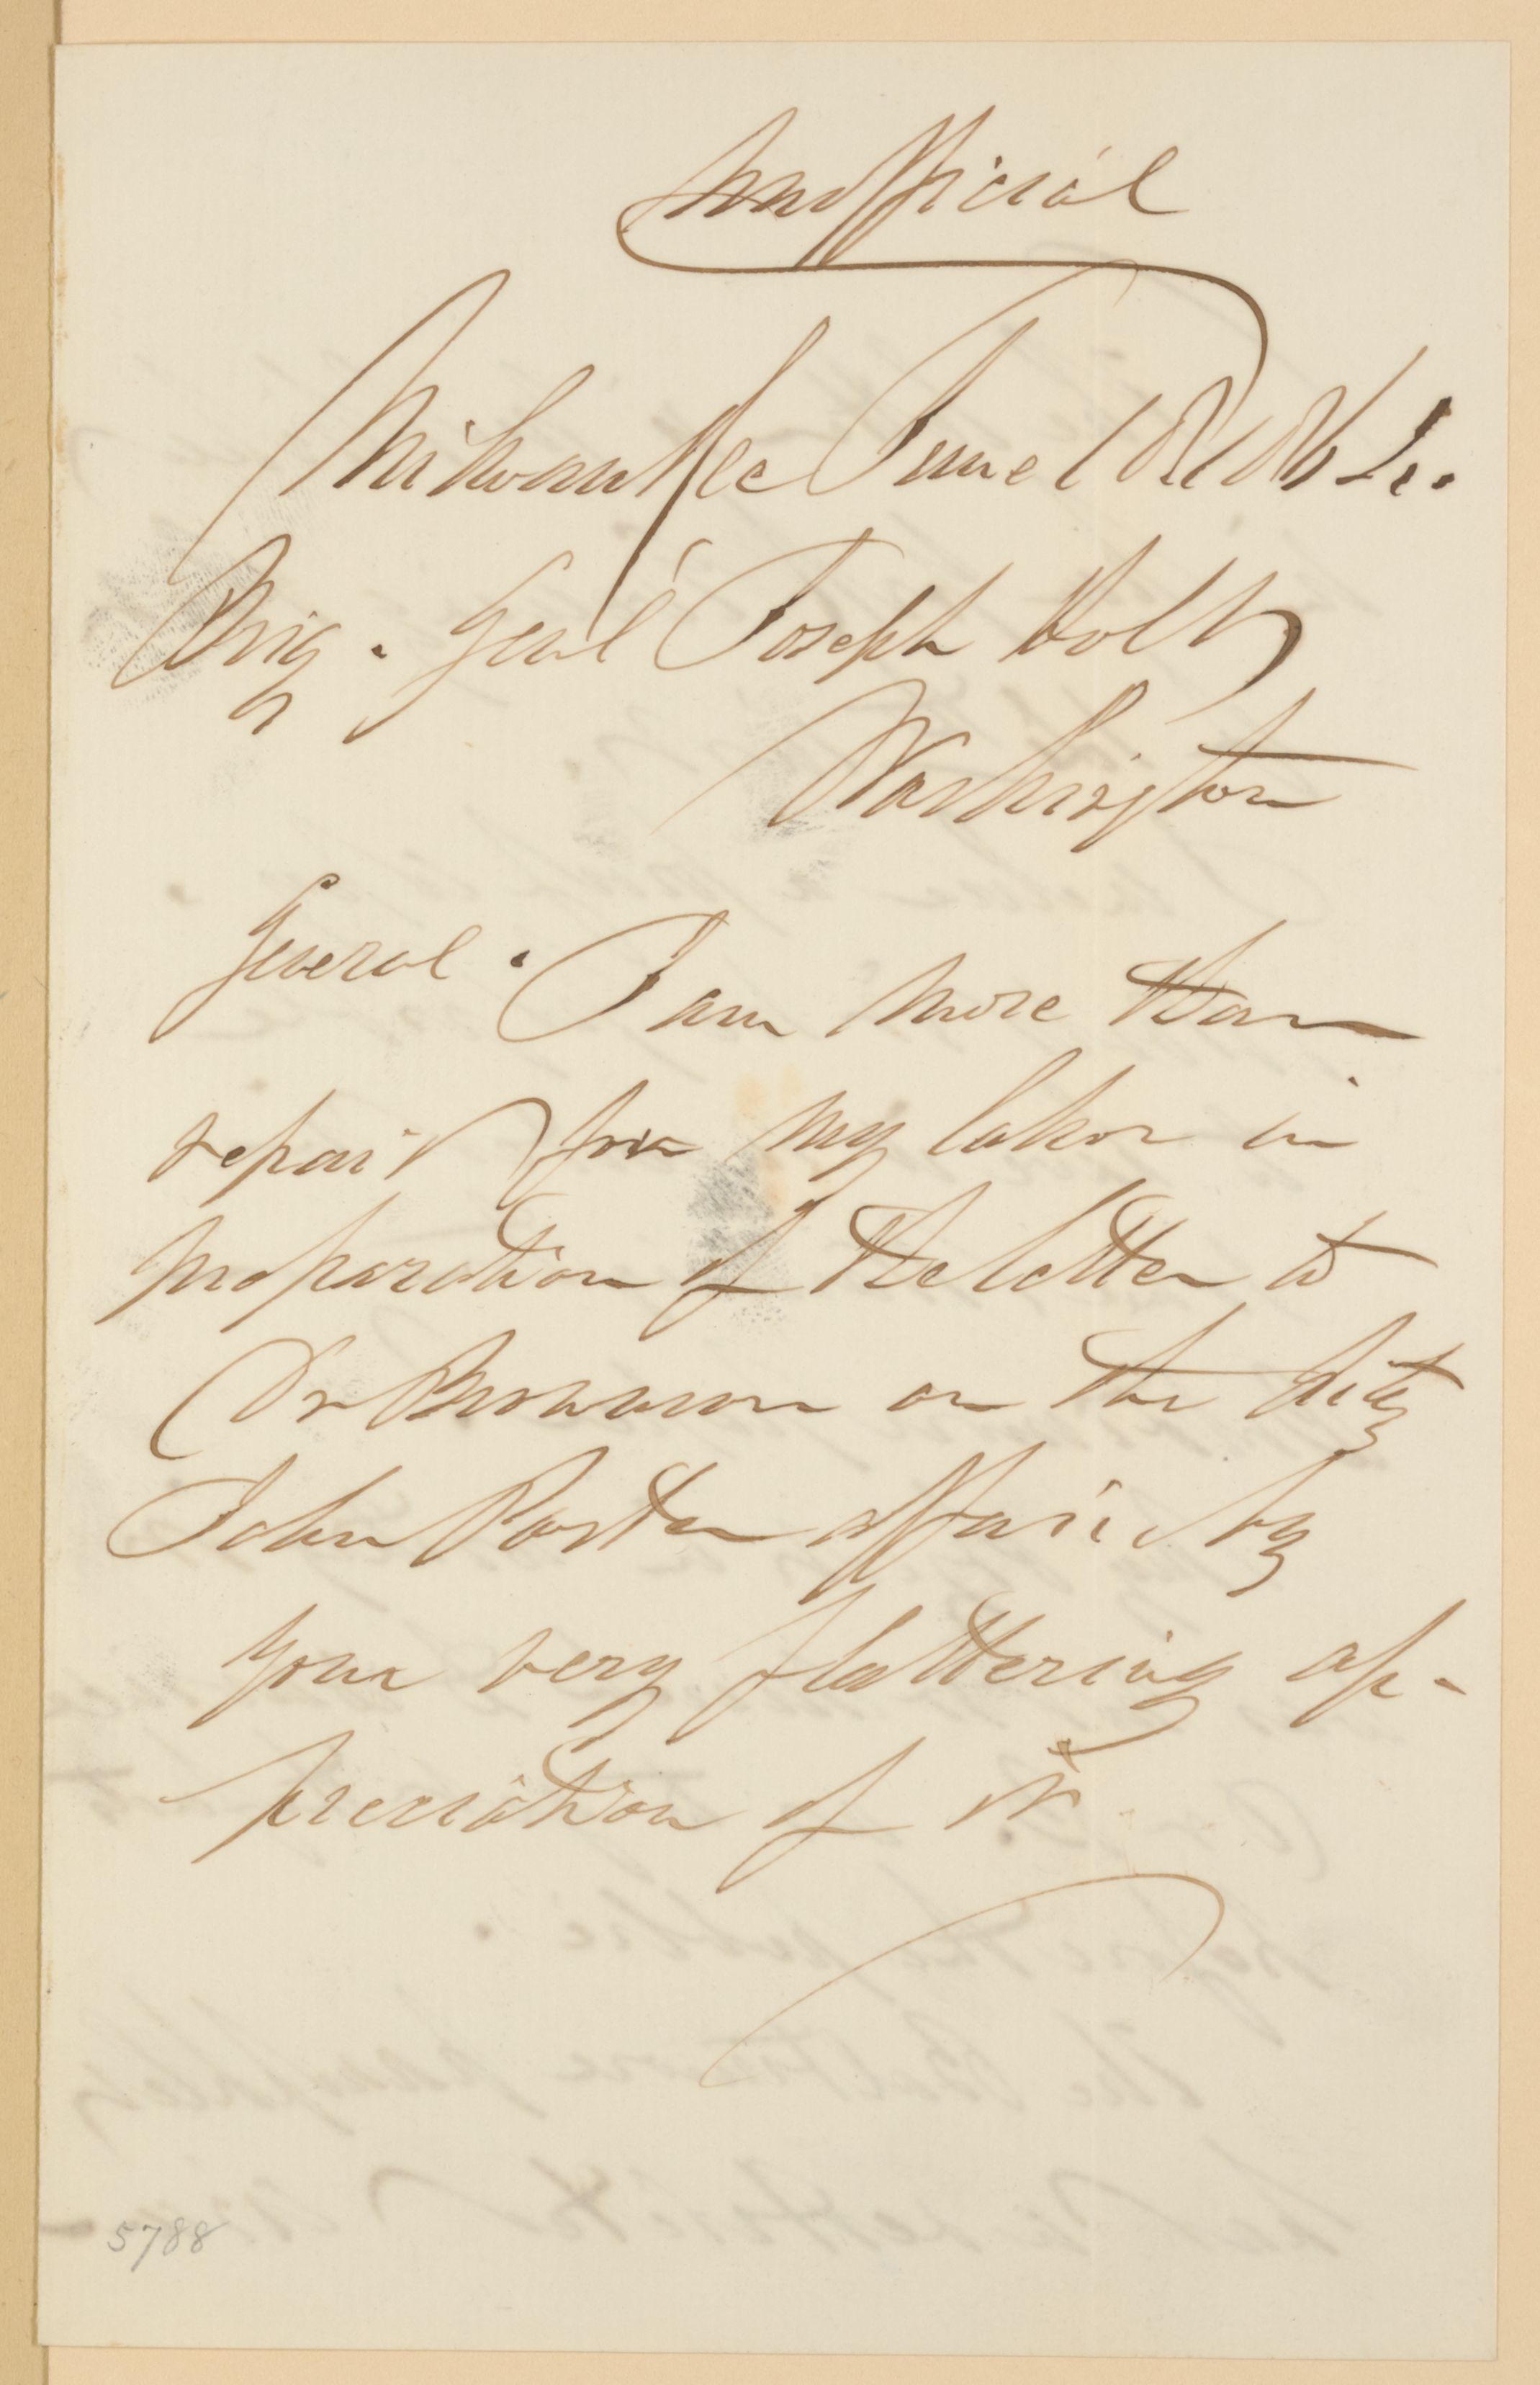 Unofficial
Milwaukee June 18 186
Brig. Genl Joseph Holt
Washington
General. I am more than
repaid for my labor in
preparation of the letter to
Dr Brownson on the Fitz
John Porter affair by
your very flattering ap-
preciation of it
5788